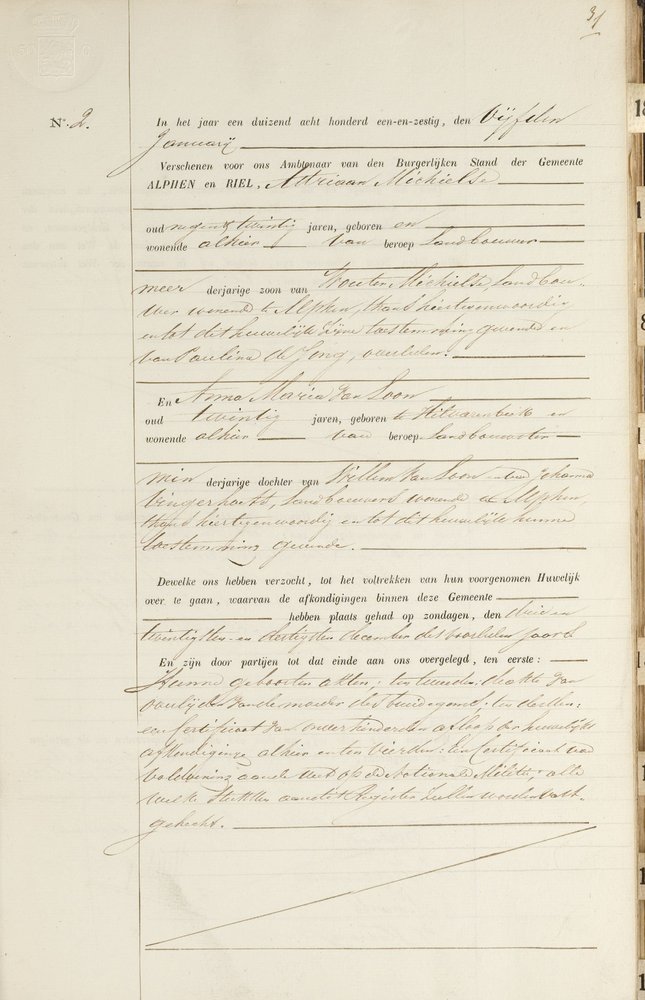 31
N°. 2.
In het jaar een duizend acht honderd een-en-zestig, den Vijfden
January
Verschenen voor ons Ambtenaar van den Burgerlijken Stand der Gemeente
ALPHEN en RIEL, Adriaan Michielse
oud negen & twintig jaren, geboren en
wonende alhier van beroep Landbouwer
meer derjarige zoon van Wouter Michielse Landbou-
wer wonende te Alphen, thans hiertegenwoordig
en tot dit huwelijk zijne toestemming gevende en
van Paulina de Jong, overleden.
En Anna Maria van Loon
oud twintig jaren, geboren te Hilvarenbeek en
wonende alhier van beroep Landbouwster
min derjarige dochter van Willem van Loon en van Johanna
Vingerhoets, Landbouwers wonende te Alphen,
thans hiertegenwoordig en tot dit huwelijk hunne
toestemming gevende.
Dewelke ons hebben verzocht, tot het voltrekken van hun voorgenomen Huwelijk
over te gaan, waarvan de afkondigingen binnen deze Gemeente
hebben plaats gehad op zondagen, den drie en
twintigsten en dertigsten december des voorleden jaars
En zijn door partijen tot dat einde aan ons overgelegd, ten eerste:
Hunne geboorten akten; ten tweede: de akte van
overlijden van de moeder des bruidegoms; ten derden:
een Certificaat van onverhinderden afloop der huwelijks
afkondiging alhier en ten vierden: Een Certificaat van
voldoening aan de Wet op de Nationale Militie; alle
welke stukken aan dit Register zullen worden vast-
gehecht.